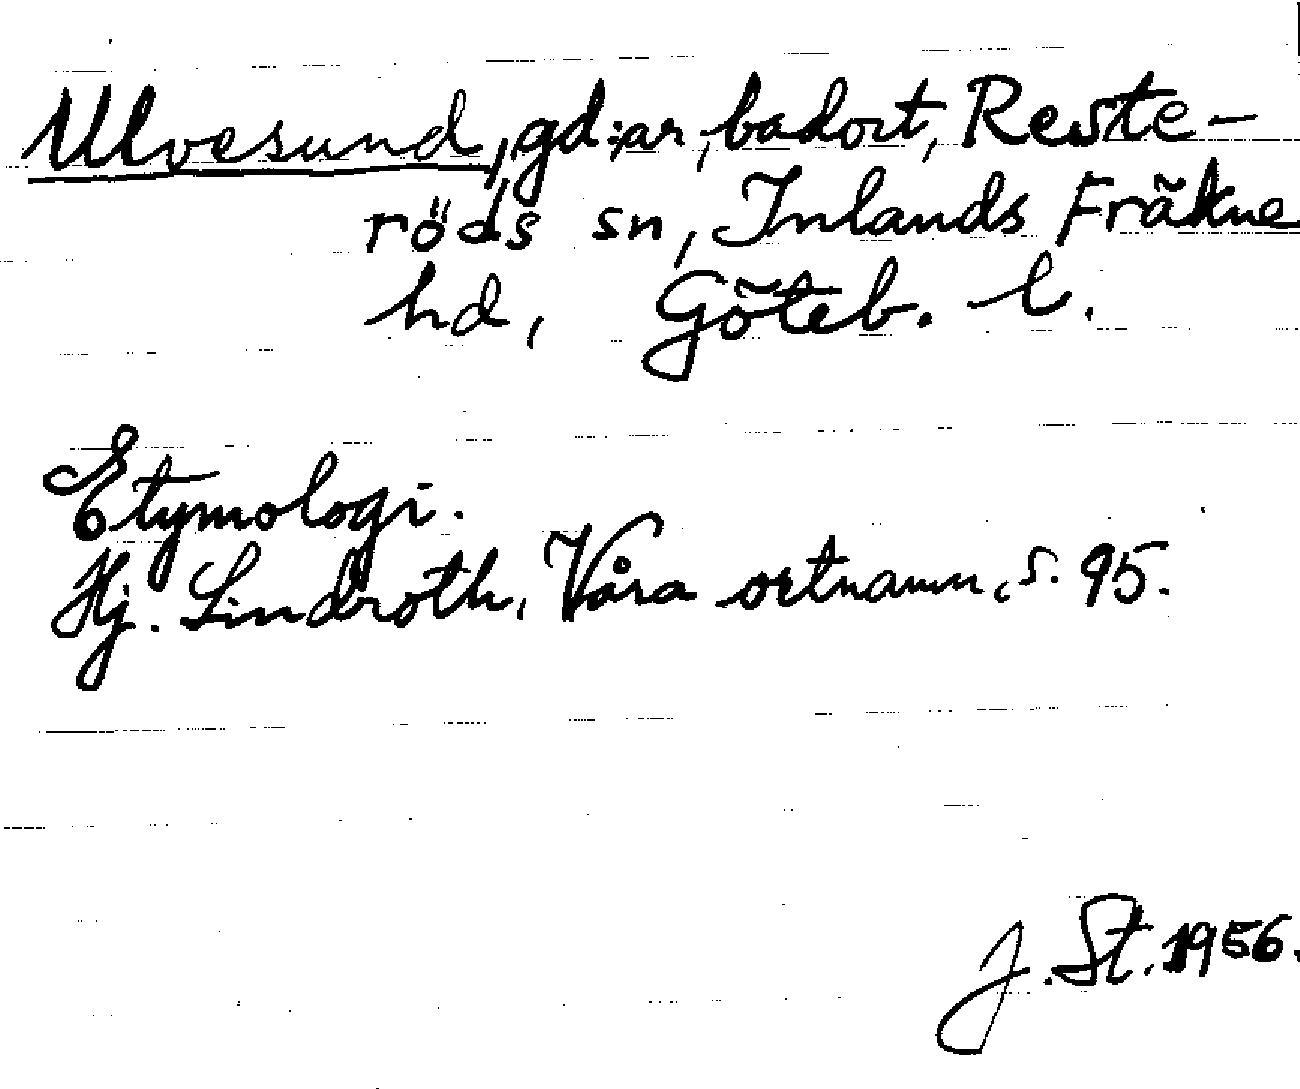 Ulvesund, gd:ar, badort, Reste-
röds sn, Inlands Fräkne
hd, Göteb. l.
Etymologi.
Hj. Lindroth, Våra ortnamn, s. 95.
J. St. 1956.